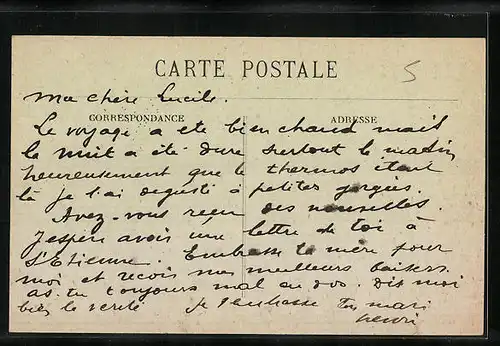 CARTE POSTALE
5
Ma chère Lucile.
CORRESPONDANCE
ADRESSE
Le voyage a ete bien chaud mais
la nuit a été dure surtout le matin,
heureusement que le thermos était
là je l'ai degusté à petites gorgées.
Avez-vous reçu des nouvelles.
J'espère avoir une lettre de toi à
St Etienne. Embrasse ta mère pour
moi et reçois mes meilleurs baisers
as-tu toujours mal au dos. Dis moi
bien la verité je t'embrasse Ton mari
Henri